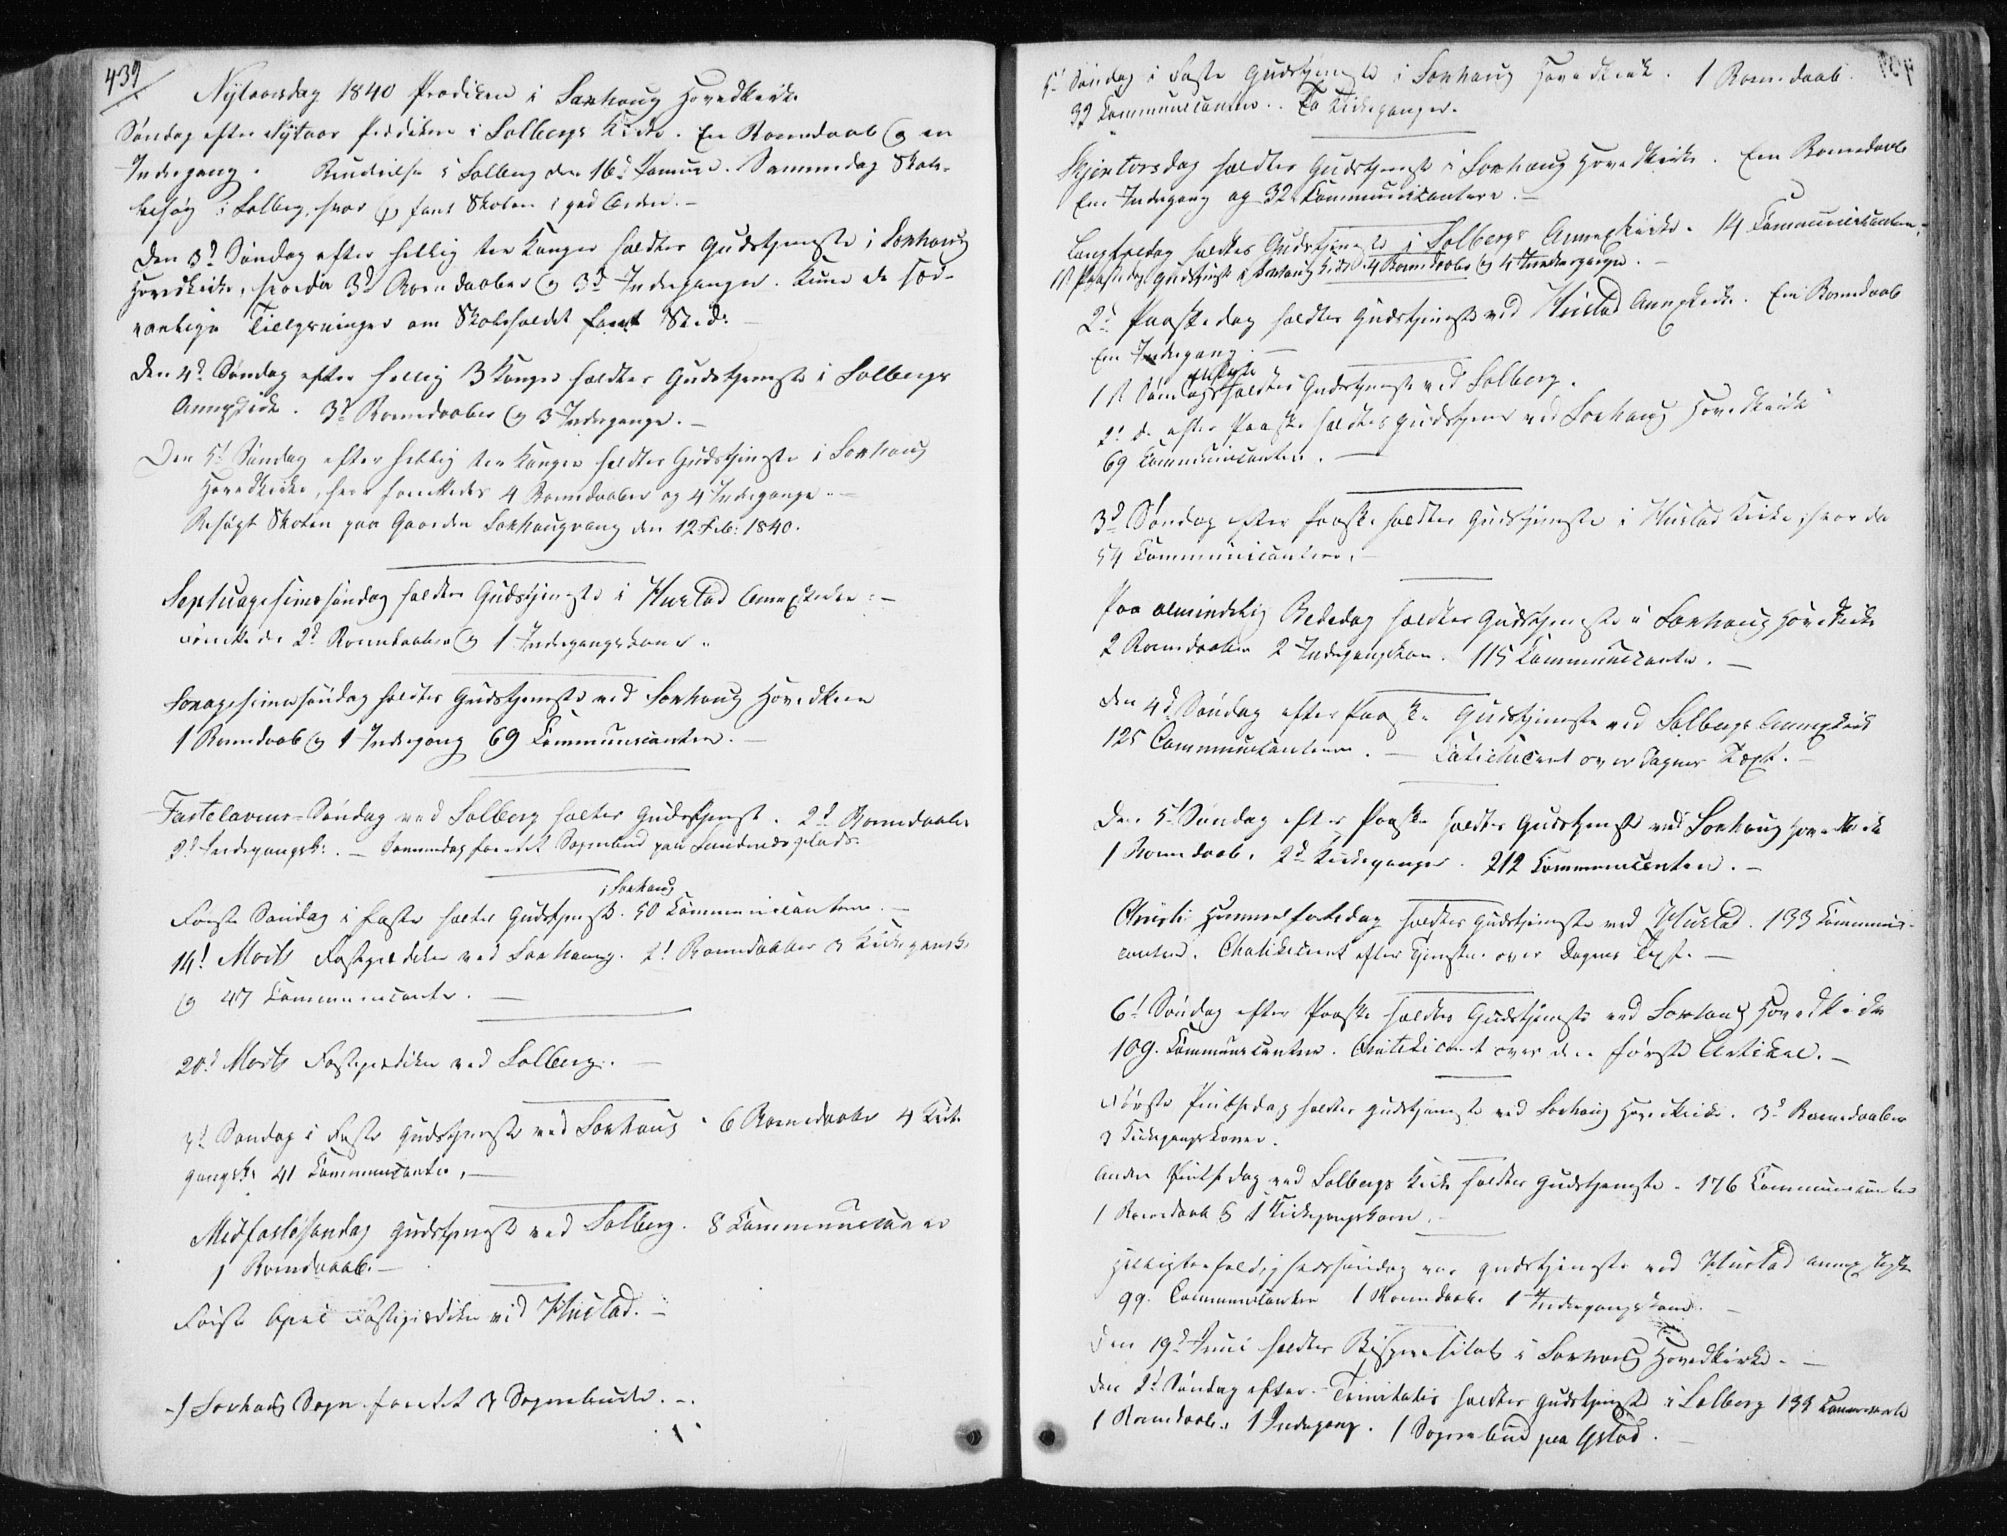 439
Nytaarsdag 1840 Prædiken i Saxhaug Hovedkirke
Søndag efter Nytaar Prædiken i Solbergs Kirke. En Barnedaab og en
Indegang. Renteilse i Solberg den 16de Januar. Samme dag Skole-
besøg i Solberg, hvor jeg fant Skolen i god Orden. —
Den 3d Søndag efter hellig tre Konger holdtes Gudstjeneste i Saxhaug
Hovedkirke, hvorda 3de Barnedaaber og 3de Indegange. Kune de sæd-
vanlige Tillysninger om Skoleholdet fandt Sted: —
Den 4de Søndag efter hellig 3 Konger holdtes Gudstjeneste i Solbergs
Annexkirke. 3de Barnedaaber og 3 Indegange. —
Den 5t Søndag efter hellig tre Konger holdtes Gudstjeneste i Saxhaug
Hovedkirke, hvor forrettedes 4 Barnedaaber og 4 Indegange. —
Besøgt Skolen paa Gaarden Saxhaugvang den 12 Feb: 1840.
Septuagesima søndag holdtes Gudstjeneste i Hustad Annexkirke: —
forrettede 2d Barnedaaber og 1 Indegangskone.
Sexagesima søndag holdtes Gudstjeneste ved Saxhaug Hovedkirke
1 Barnedaab og 1 Indegang 69 Communicanter. —
Fastelavens-Søndag ved Solberg holtes Gudstjenest. 2d Barnedaaber
2d Indegangsk: — Sammedag forrettet Sognebud paa Sundnesplads.
i Saxhaug
Første Søndag i Faste holtes Gudstjenest. 50 Communicantere. —
14d Marts Fastepræken ved Saxhaug. 2d Barnedaaber 3 Kirkegangsk
og 47 Communicanter. —
20d Marts Fasteprædiken ved Solberg. —
3d Søndag i Faste Gudstjeneste ved Saxhaug. 6 Barnedaaber 4 Kirke
gangsk: 41 Communicanter. —
Midfastesøndag Gudstjeneste ved Solberg. 8 Communicanter
1 Barnedaab. —
Første April Fasteprædiken ved Hustad. —
I Saxhaug Sogn forrettet 3 Sognebude. —
5t Søndag i Faste Gudstjeneste i Saxhaug Hovedkirke. 1 Barnedaab.
39 Communicanter. To Kirkeganger.
Skjertorsdag holdtes Gudstjeneste i Saxhaug Hovedkirke. En Barnedaab
En Indegang og 32 Communicantere. —
Langfredag holdtes Gudstjeneste i Solbergs Annexkirke. 14 Communicantere. —
1st Paaskedag Gudstjenest i Saxhaug Kirke 4 Barnedaaber og 4 Indegange. —
2d Paaskedag holdtes Gudstjeneste ved Hustad Annexkirke. En Barnedaab
En Indegang. —
1st Søndag holdtes Gudstjeneste ved Solberg.
2d S. efter Paaske holdtes Gudstjenes ved Saxhaug Hovedkirke
69 Communicanter. —
3d Søndag efter Paaske holdtes Gudstjeneste i Hustad Kirke, hvor da
54 Communicantere. —
Paa almindelig Bededag holdtes Gudstjeneste i Saxhaug Hovedkirke
2 Barnedaaber 2 Indegangskon. 115 Communicanter. —
Den 4d Søndag efter Paaske Gudstjeneste ved Solbergs Annexkirke
125 Communicantere. — Catechiceret over Dagens Text. —
Den 5t Søndag efter Paaske holdtes Gudstjeneste ved Saxhaug Hovedkirke
1 Barnedaab. 2d Kirkeganger. 212 Communicanter. —
Christi Himmelfartsdag holdtes Gudstjeneste ved Hustad. 133 Communi-
canter. Chatekiceret efter Tjenesten over Dagens Text. —
6t Søndag efter Paaske holdtes Gudstjeneste ved Saxhaug Hovedkirke
109. Communicanter. Chatekiceret over den første Artikel. —
Første Pintsedag holdtes Gudstjeneste ved Saxhaug Hovedkirke. 3d Barnedaaber
3 Kirkegangskoner.
Anden Pintsedag ved Solbergs Kirke holdtes Gudstjeneste. 176 Communicanter
1 Barnedaab & 1 Kirkegangskone. —
Helligtrefoldighedssøndag var Gudstjeneste ved Hustad Annexkirke
99. Communicanter 1 Barnedaab. 1 Indegangskone. —
Den 19d Juni holdtes Bispevisitats i Saxhaug Hovedkirke. —
Den 2d Søndag efter Trinitatis holdtes Gudstjeneste i Solberg 133 Communicante
1 Barnedaab. 1 Indegang. 1 Sognebud paa Gstad. —